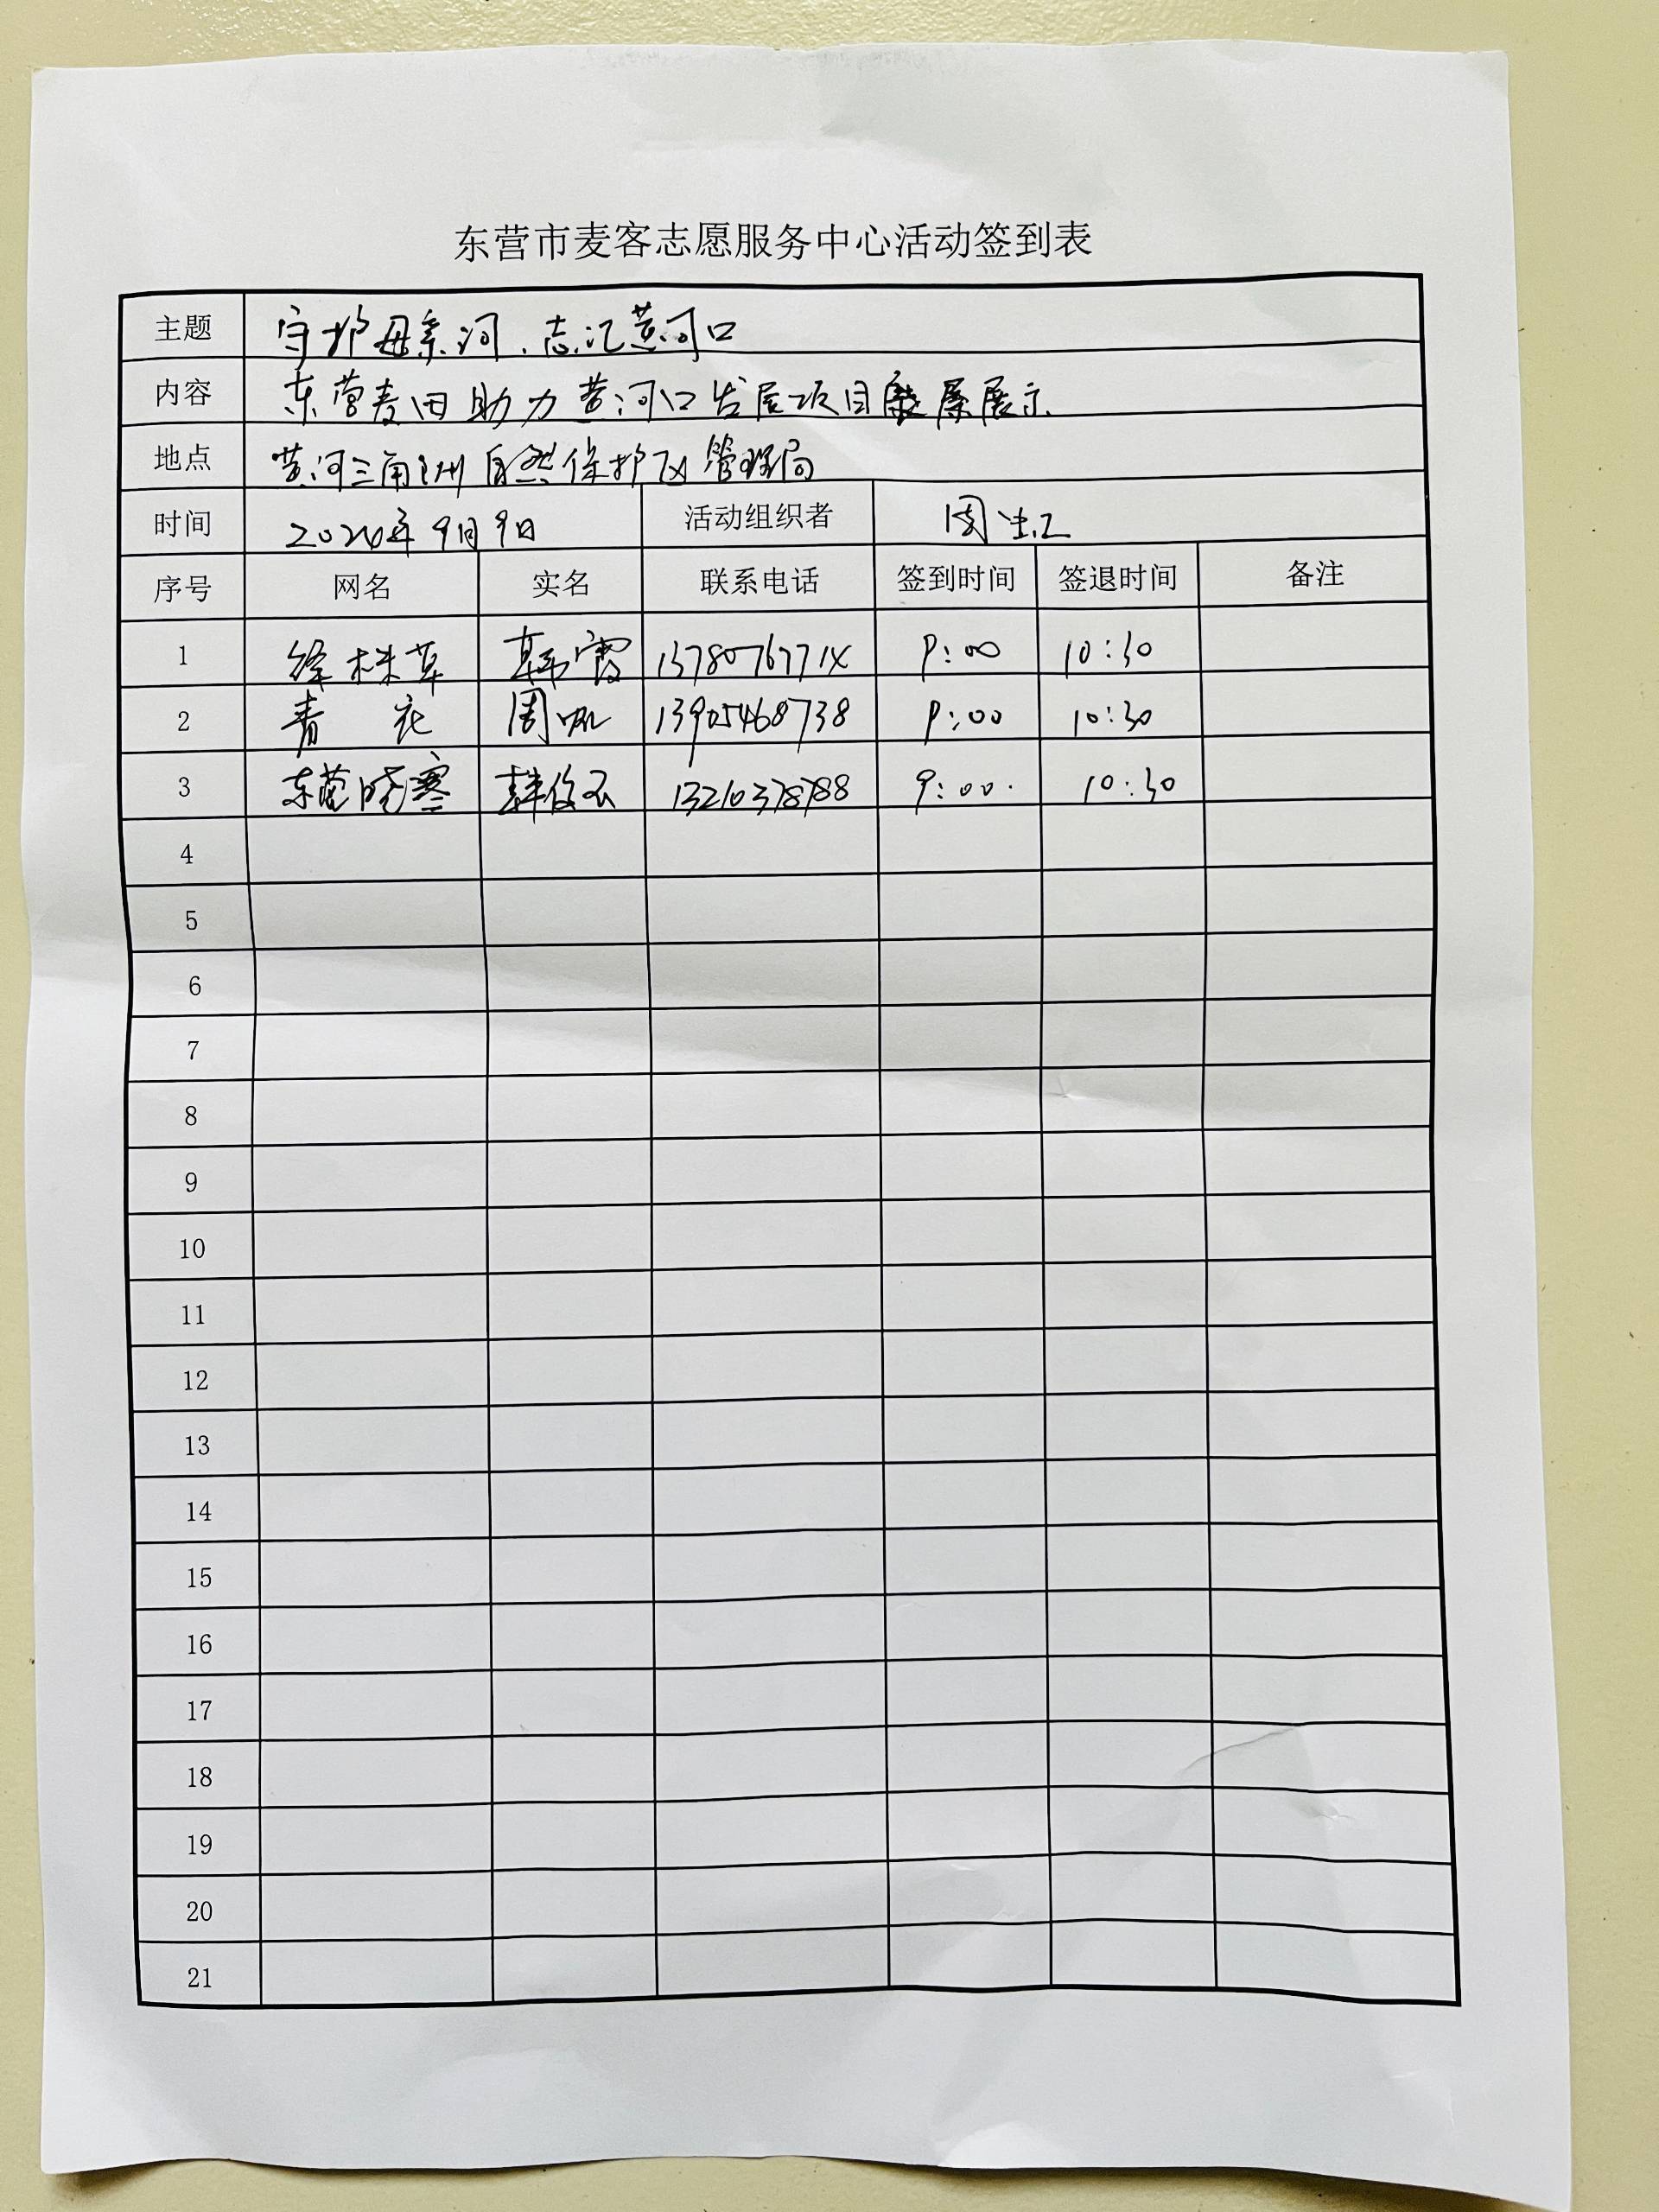 东营市麦客志愿服务中心活动签到表
主题 守护母亲河.志汇黄河口
内容 东营麦田助力黄河口发展项目展示
地点 黄河三角洲自然保护区管理局
时间 2024年9月9日 活动组织者 周
序号 网名 实名 联系电话 签到时间 签退时间 备注
1 绛株草 韩霞 1378076771X 9:00 10:30
2 青 花 周 13905468738 9:00 10:30
3 东营晓寒 13210378788 9:00. 10:30
4
5
6
7
8
9
10
11
12
13
14
15
16
17
18
19
20
21